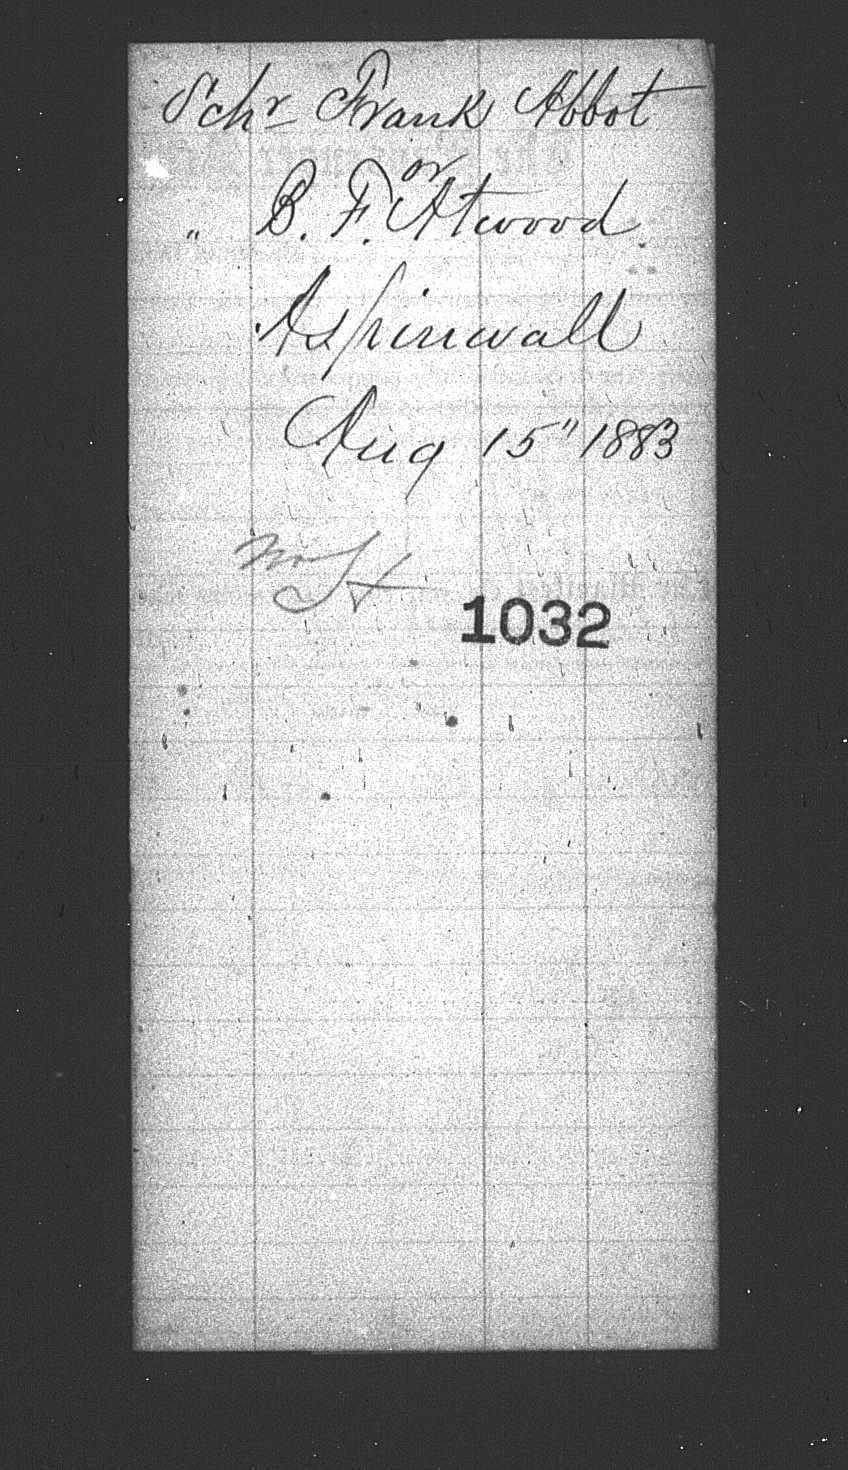 Schr Frank Abbot
or
" B. F. Atwood.
Aspinwall
Aug 15" 1883
1032